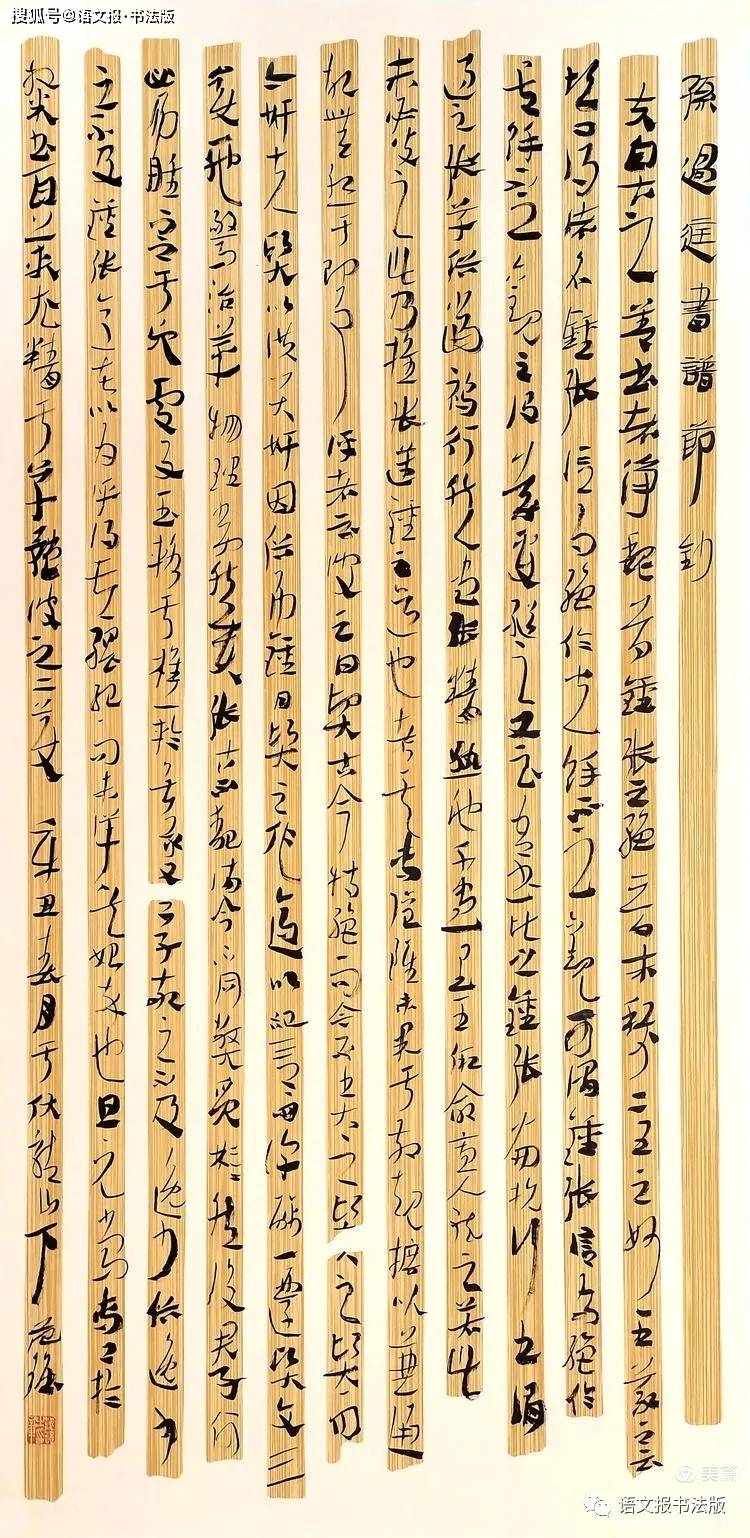 搜狐号@语文报·书法版
孫過庭書譜節鈔
夫自古之善書者漢魏有鍾張之絕晉末稱二王之妙王羲之云
頃尋諸名鍾張信為絕倫其餘不足觀可謂鍾張信為絕倫
其餘不足觀云沒而羲獻繼之又云吾書比之鍾張當抗行或謂
過之張草猶當雁行然張精熟池水盡墨假令寡人耽之若此
未必謝之此乃推張邁鍾之意也考其專擅雖未果于前規摭以兼通
故無慚于即事評者云彼之四賢古今特絕而今不逮古古之質而
今妍夫質以代興妍因俗易雖書契之作適以記言而淳醨一遷質文三
變馳騖沿革物理常然貴能古不乖時今不同弊所謂彬彬然後君子何
必易雕宮于穴處反玉輅于椎輪者乎又云子敬之不及逸少猶逸少
之不及鍾張意者以為評得其綱紀而未詳其始卒也且元常專工於
隸書伯英尤精于草體彼之二美 辛丑春月于伏龍山下
美篇
语文报书法版